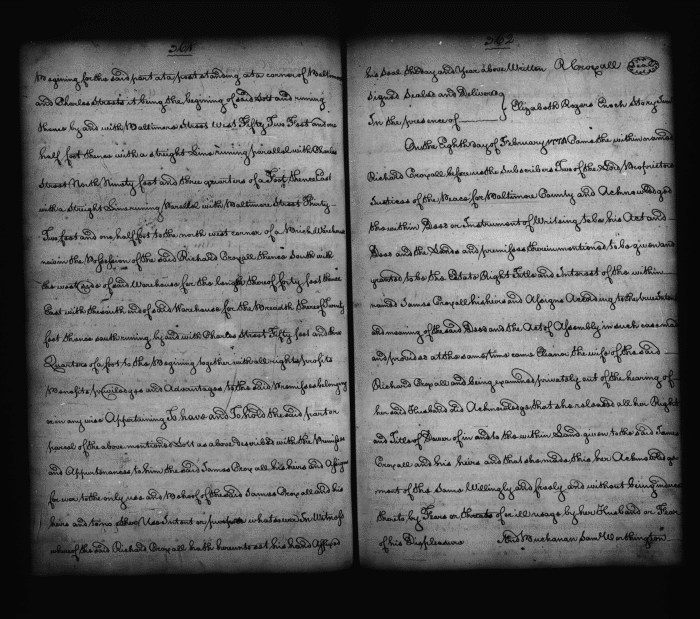 361
Begining for the said part at a post standing at a corner of Baltimore
and Charles Streets it being the begining of said Lott and runing
thence by and with Baltimore Street West Fifty Two Feet and one
half foot thence with a streight Line runing parallel with Charles
Street North Ninety foot and three quarters of a Foot thence East
with a Streight Line runing Parallel with Baltimore Street Thirty
Two foot and one half foot to the north west corner of a Brick Warehouse
now in the Possession of the said Richard Croxall thence South with
the west side of said Warehouse for the length thereof forty foot thence
East with the south side of said Warehouse for the Breadth thereof Twenty
foot thence south runing by and with Charles Street Fifty foot and three
Quarters of a foot to the Begining together with all rights profits
Benefits priviledges and Advantages to the said Premises belonging
or in any wise Appertening To have and To hold the said part or
parcel of the above mentioned Lott as above described with the Premises
and Appurtenances to him the said James Croxall his heirs and Assigns
for ever to the only use and Behoof of the said James Croxall and his
heirs and to no other Use Intent or purpose whatsoever In Witness
whereof the said Richard Croxall hath hereunto set his hand Affixed
362
his Seal the day and Year above Written R Croxall
Signed Sealed and Delivered
In the presence of Elizabeth Rogers Enoch Story Junr
On the Eighth day of February Came the within named
Richard Croxall before us the Subscribers Two of the Lord Proprietors
Justices of the Peace for Baltimore County and Acknowledged
the within Deed or Instrument of Writeing to be his Act and
Deed and the Lands and premises therein mentioned to be given and
granted to be the Estate Right Title and Interest of the within
named James Croxall his heirs and Assigns According to the true Intent
and meaning of the said Deed and the Act of Assembly in such case made
and provided at the same time came Eleanor the wife of the said
Richard Croxall and being examined privately out of the hearing of
her said Husband did Acknowledge that she released all her Right
and Title of Dower of in and to the within Land given to the said James
Croxall and his heirs and that she made this her Acknowledge
ment of the same Willingly and freely and without being induced
thereto by Fears or threats of or ill usage by her Husband or Fear
of his Displeasure And Buchanan Saml Worthington